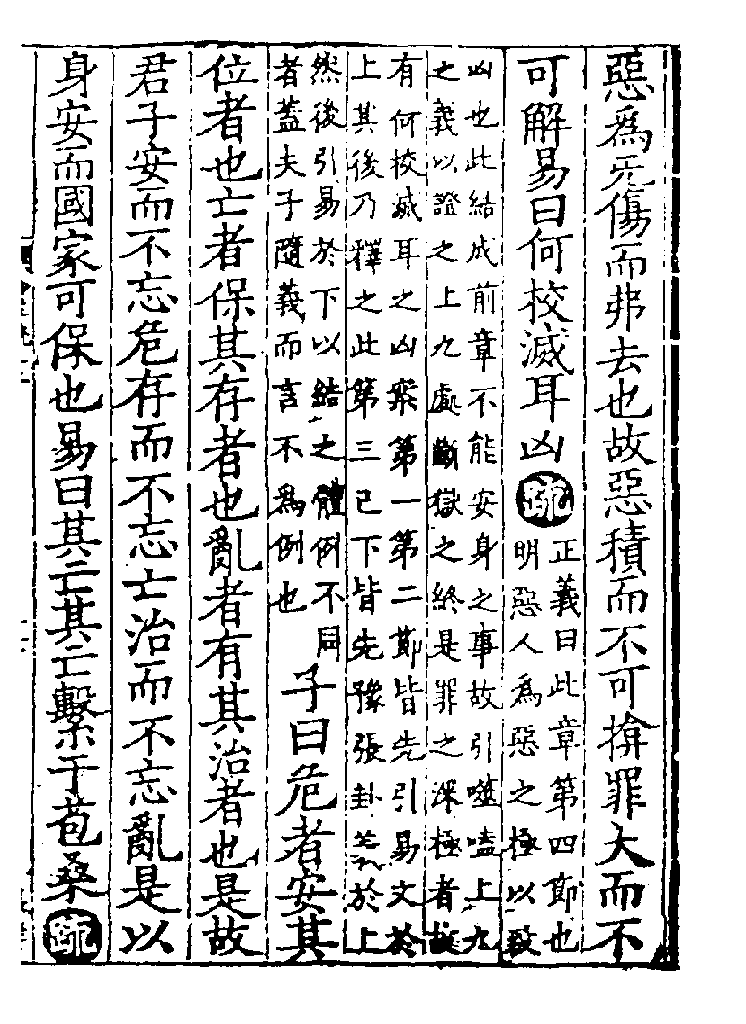 惡爲无傷而弗去也故惡積而不可揜罪大而不
可解易曰何校滅耳凶疏
正義曰此章第四節也
明惡人爲惡之極以致
凶也此結成前章不能安身之事故引噬嗑上九
之義以證之上九處斷獄之終是罪之深極者故
有何校滅耳之凶案第一第二節皆先引易文於
上其後乃釋之此第三已下皆先豫張卦義於上
然後引易於下以結之體例不同
者蓋夫子隨義而言不爲例也
子曰危者安其
位者也亡者保其存者也亂者有其治者也是故
君子安而不忘危存而不忘亡治而不忘亂是以
身安而國家可保也易曰其亡其亡繫于苞桑疏